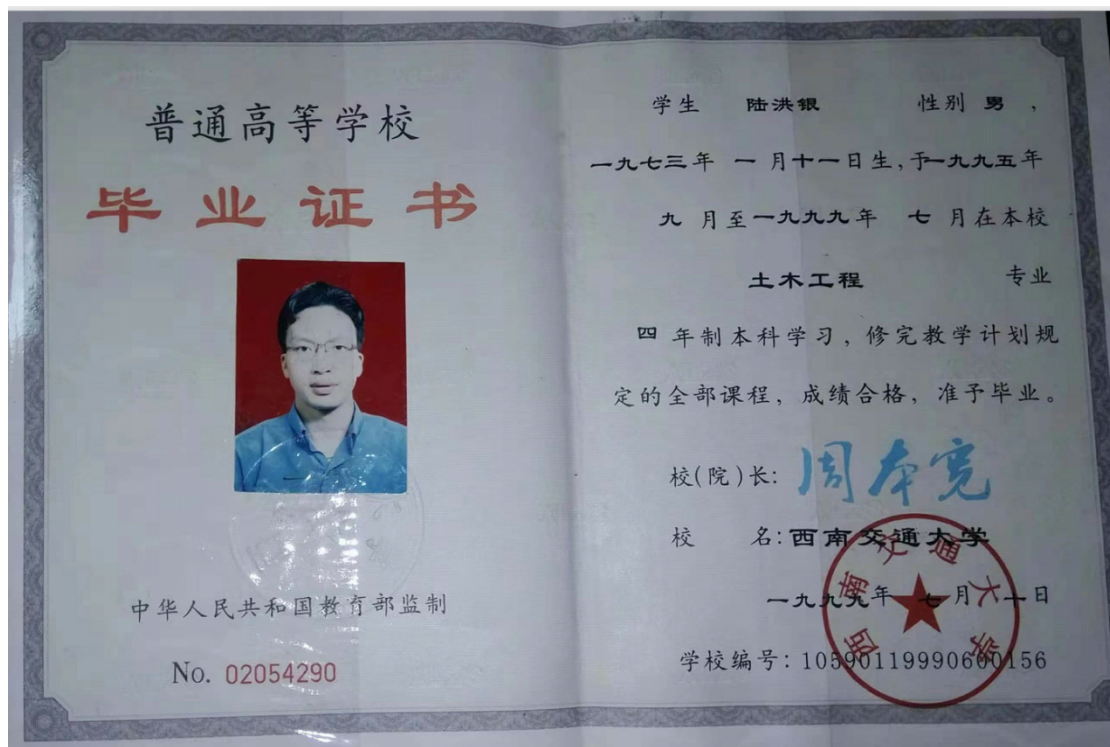 普通高等学校
毕业证书
中华人民共和国教育部监制
No. 02054290
学生 陆洪银 性别 男，
一九七三年 一月十一日生，于一九九五年
九月至一九九九年 七月在本校
土木工程 专业
四年制本科学习，修完教学计划规
定的全部课程，成绩合格，准予毕业。
校(院)长：周本宽
校 名：西南交通大学
一九九九年 七月 一日
学校编号：10590119990600156
西南交通大学